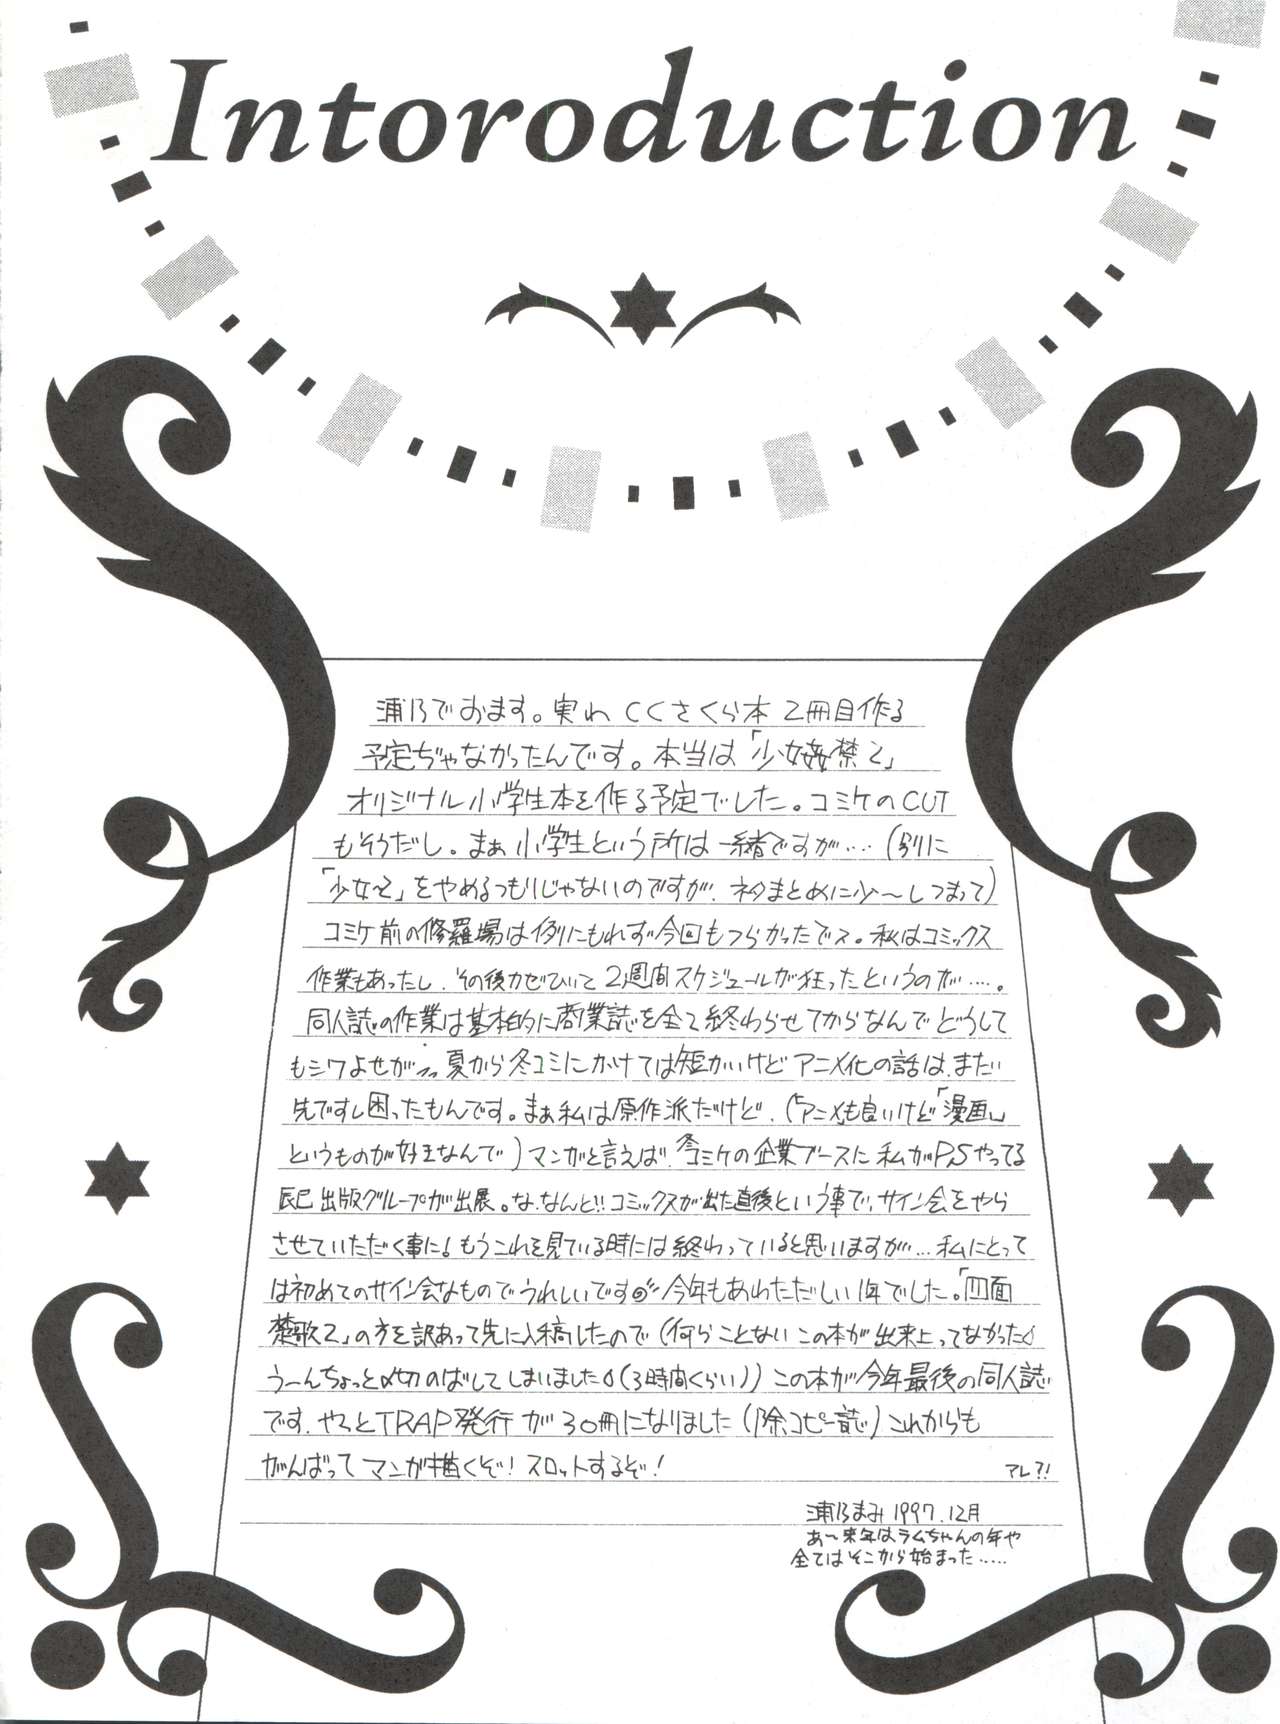 Intoroduction
浦乃でおます。実わ CCさくら本 2冊目作る
予定ぢゃなかったんです。本当は「少女姦禁2」
オリジナル小学生本を作る予定でした。コミケのCUT
もそうだし。まぁ小学生という所は一緒ですが…(別に
「少女〜2」をやめるつもりじゃないのですが、ネタまとめに少〜しつまって)
コミケ前の修羅場は例にもれず今回もつらかったでス。私はコミックス
作業もあったし、その後カゼひいて2週間スケジュールが狂ったというのが……。
同人誌の作業は基本的に商業誌を全て終わらせてからなんでどうして
もシワよせがっっ夏から冬コミにかけては短かいけどアニメ化の話は、まだ
先ですし困ったもんです。まぁ私は原作派だけど、(「アニメ」も良いけど「漫画」
というものが好きなんで)マンガと言えば、冬コミケの企業ブースに私がP.Sやってる
辰巳出版グループが出展。な、なんと!!コミックスが出た直後という事で、サイン会をやら
させていただく事に!もうこれを見ている時には終わっていると思いますが…私にとって
は初めてのサイン会なものでうれしいです 今年もあわただしい1年でした。「四面
楚歌2」の方を訳あって先に入稿したので(何らことないこの本が出来上ってなかった
う〜んちょっと〆切のばしてしまいました(3時間くらい))この本が今年最後の同人誌
です、やっとTRAP発行が30冊になりました(除コピー誌)これからも
がんばってマンガ描くぞ!スロットするぞ! アレ?!
浦乃まみ 1997.12月
あ〜来年はラムちゃんの年や
全てはそこから始まった……